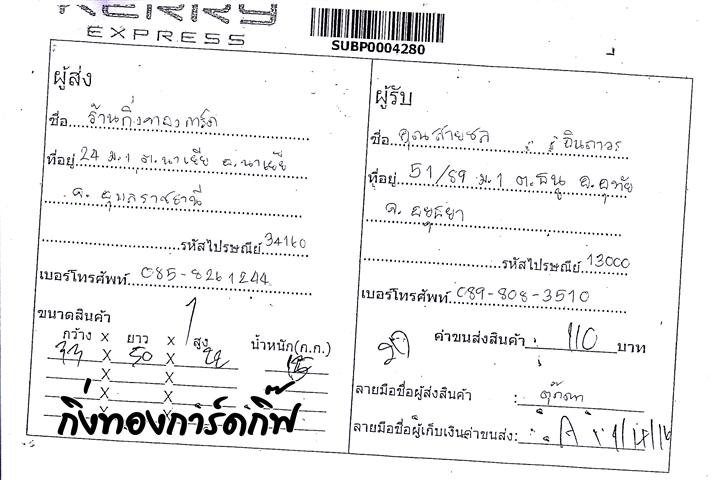 KERRY
EXPRESS
SUBP0004280
ผู้ส่ง
ชื่อ ร้านกิ่งทองการ์ด
ที่อยู่ 24 ม.1 ต.นาเยีย อ.นาเยีย
จ. อุบลราชธานี
รหัสไปรษณีย์ 34160
เบอร์โทรศัพท์ 085-8261244
ขนาดสินค้า
กว้าง x ยาว x สูง น้ำหนัก(ก.ก.)
33 X 50 X 22
X X
X X
X
กิ่งทองการ์ดกิ๊ฟ
ผู้รับ
ชื่อ คุณสายชล จินถาวร
ที่อยู่ 51/89 ม.1 ต.ธนู อ.อุทัย
จ. อยุธยา
รหัสไปรษณีย์ 13000
เบอร์โทรศัพท์ 089-808-3510
ค่าขนส่งสินค้า : 110 บาท
ลายมือชื่อผู้ส่งสินค้า : ตุ๊กตา
ลายมือชื่อผู้เก็บเงินค่าขนส่ง: